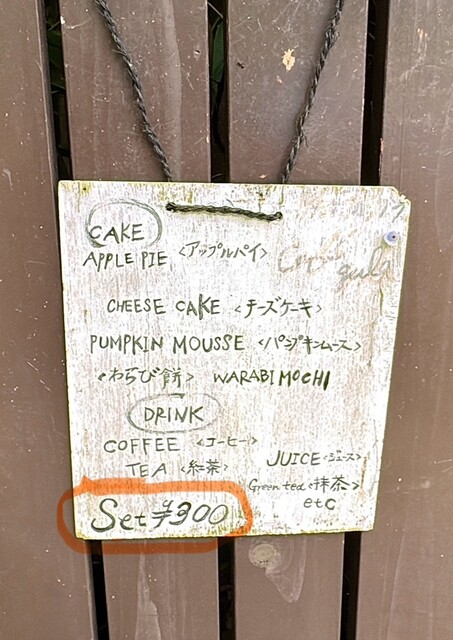 CAKE
APPLE PIE <アップルパイ>
CHEESE CAKE <チーズケーキ>
PUMPKIN MOUSSE <パンプキンムース>
<わらび餅> WARABI MOCHI
DRINK
COFFEE <コーヒー>
TEA <紅茶>
JUICE <ジュース>
Green tea <抹茶>
etc
Set ¥300